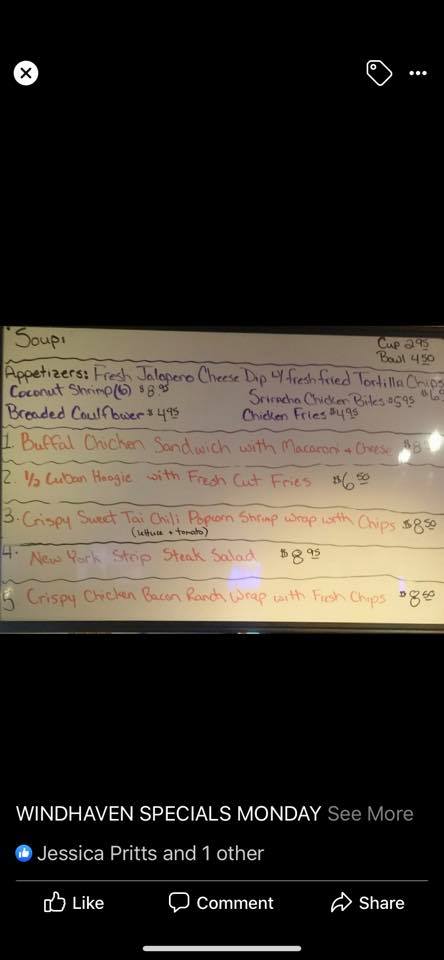 Soup:
Cup 2.95
Bowl 4.50
Appetizers: Fresh Jalapeno Cheese Dip w/ fresh fried Tortilla Chips
Coconut Shrimp (6) $8.95 Sriracha Chicken Bites $5.95
Breaded Caulflower $4.95 Chicken Fries $4.95
1. Buffal Chicken Sandwich with Macaroni + Cheese
2. 1/2 Cuban Hoagie with Fresh Cut Fries $6.50
3. Crispy Sweet Tai Chili Popcorn Shrimp Wrap with Chips $8.50
(lettuce + tomato)
4. New York Strip Steak Salad $8.95
5 Crispy Chicken Bacon Ranch Wrap with Fresh Chips $8.50
WINDHAVEN SPECIALS MONDAY See More
Jessica Pritts and 1 other
Like Comment Share